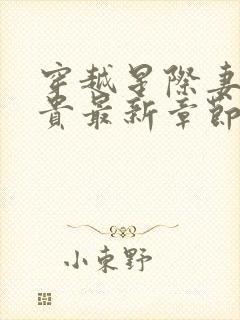 穿越星際妻
貴最新章節
小東野